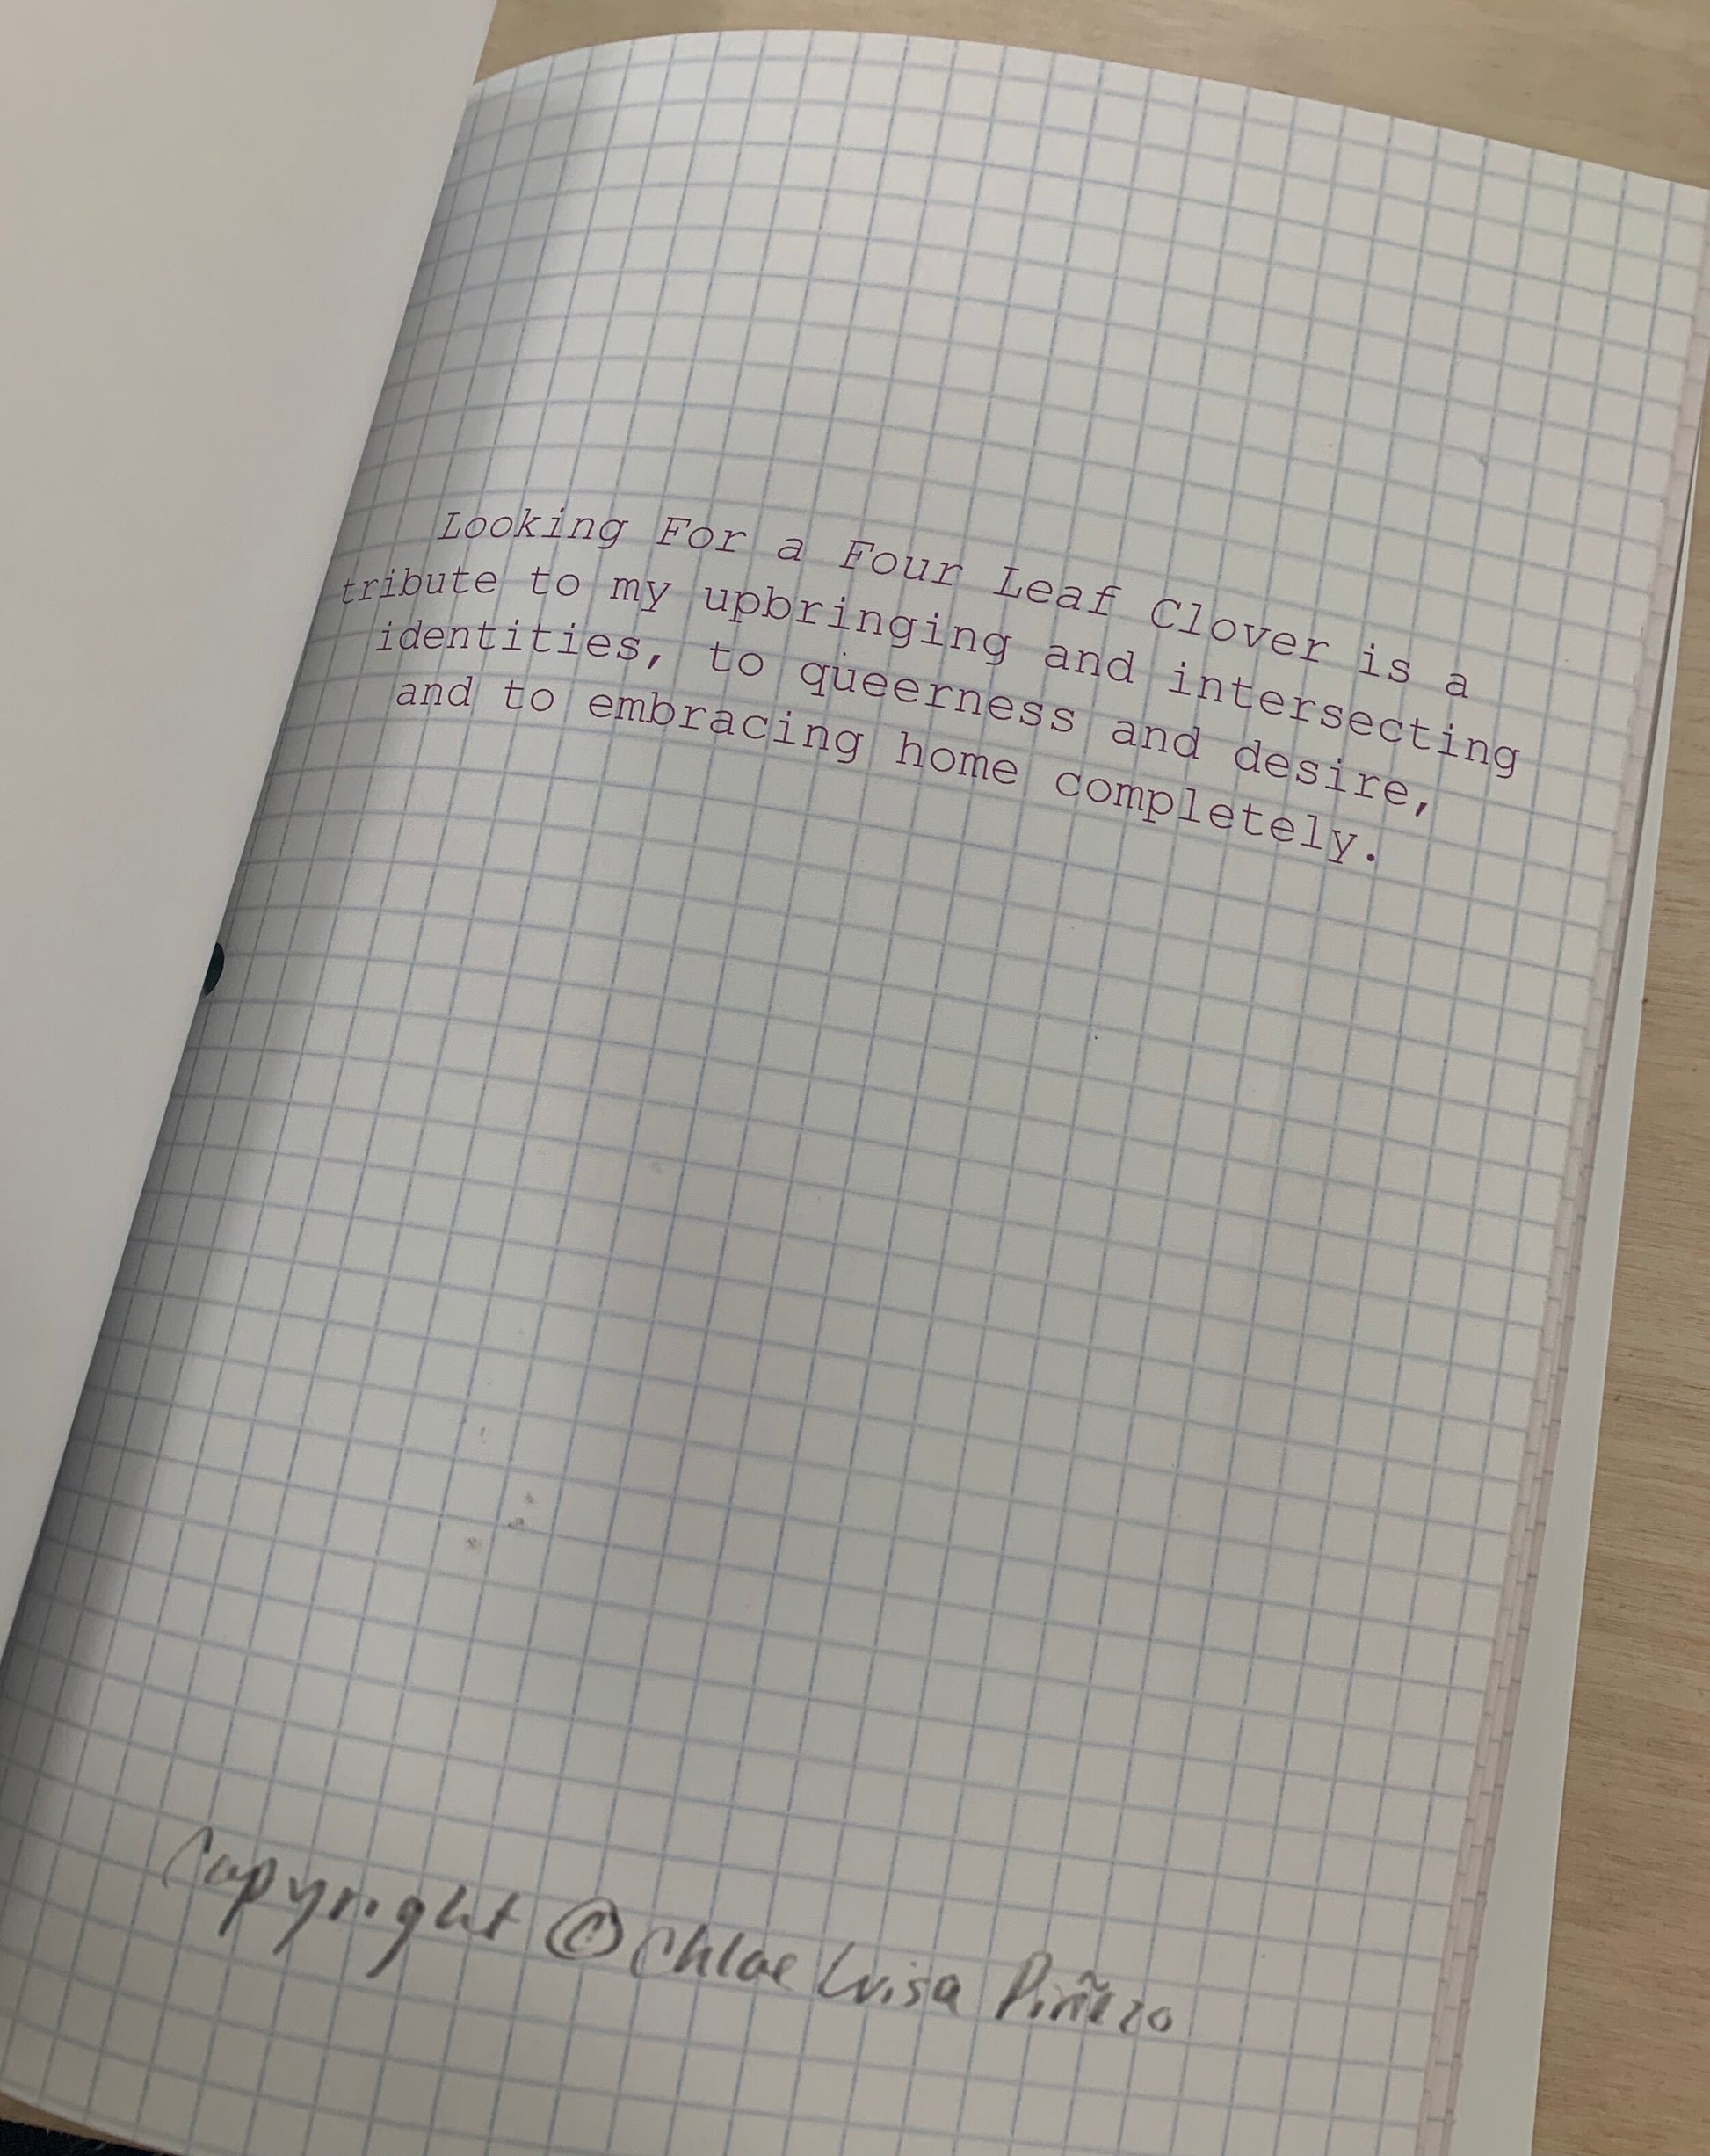 Looking For a Four Leaf Clover is a
tribute to my upbringing and intersecting
identities, to queerness and desire,
and to embracing home completely.
Copyright © Chloe Luisa Piñero